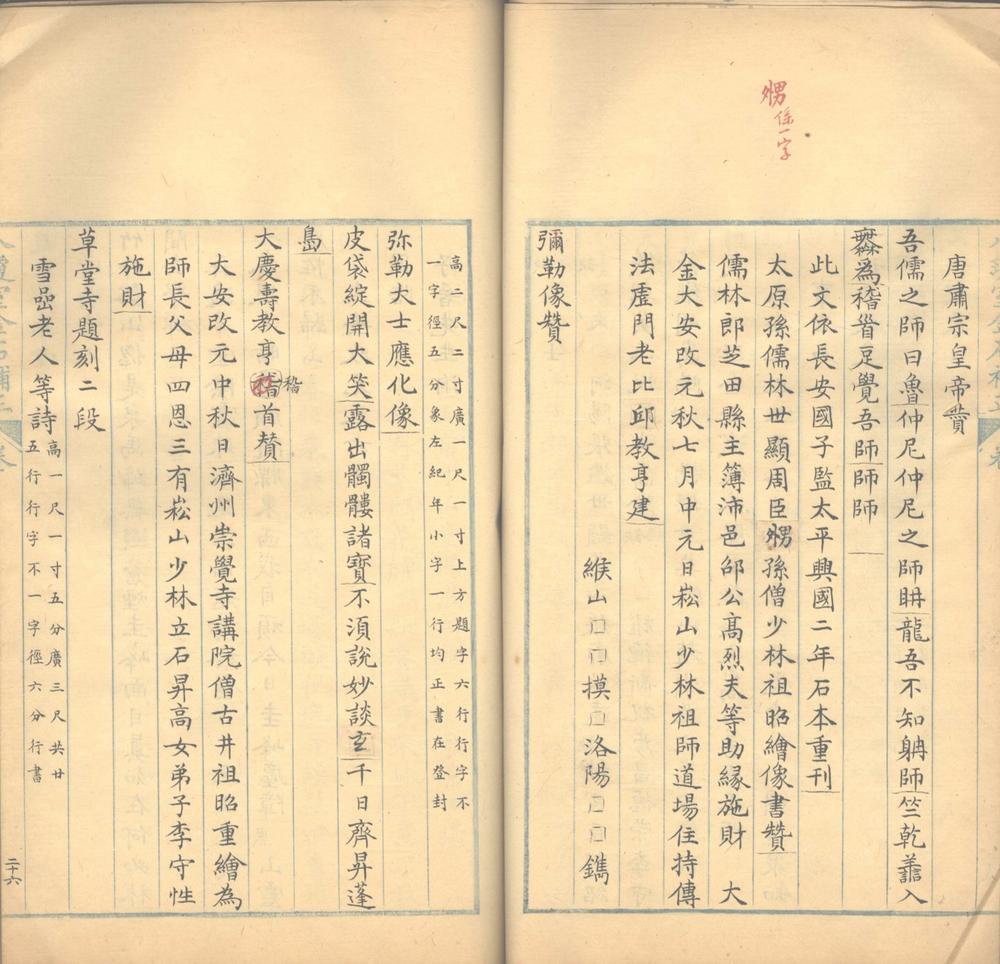 甥係一字
唐肅宗皇帝賛
吾儒之師曰魯仲尼仲尼之師聃龍吾不知聃師竺乾善入
無為稽首正覺吾師師師
此文依長安國子監太平興國二年石本重刊
太原孫儒林世顯周臣甥孫僧少林祖昭繪像書贊
儒林郎芝田縣主簿沛邑邰公高烈夫等助緣施財 大
金大安改元秋七月中元日崧山少林祖師道場住持傳
法虛門老比邱教亨建
緱山□□摸□洛陽□□鐫
彌勒像贊
高二尺二寸廣一尺一寸上方題字六行行字不
一字徑五分象左紀年小字一行均正書在登封
弥勒大士應化像
皮袋綻開大笑露出髑髏諸寶不須說妙談玄千日齊昇蓬
島
大慶壽教亨稽首賛
稽
大安改元中秋日濟州崇覺寺講院僧古井祖昭重繪為
師長父母四恩三有崧山少林立石昇高女弟子李守性
施財
草堂寺題刻二段
雪嵒老人等詩
高一尺一寸五分廣三尺共廿
五行行字不一字徑六分行書
二十六